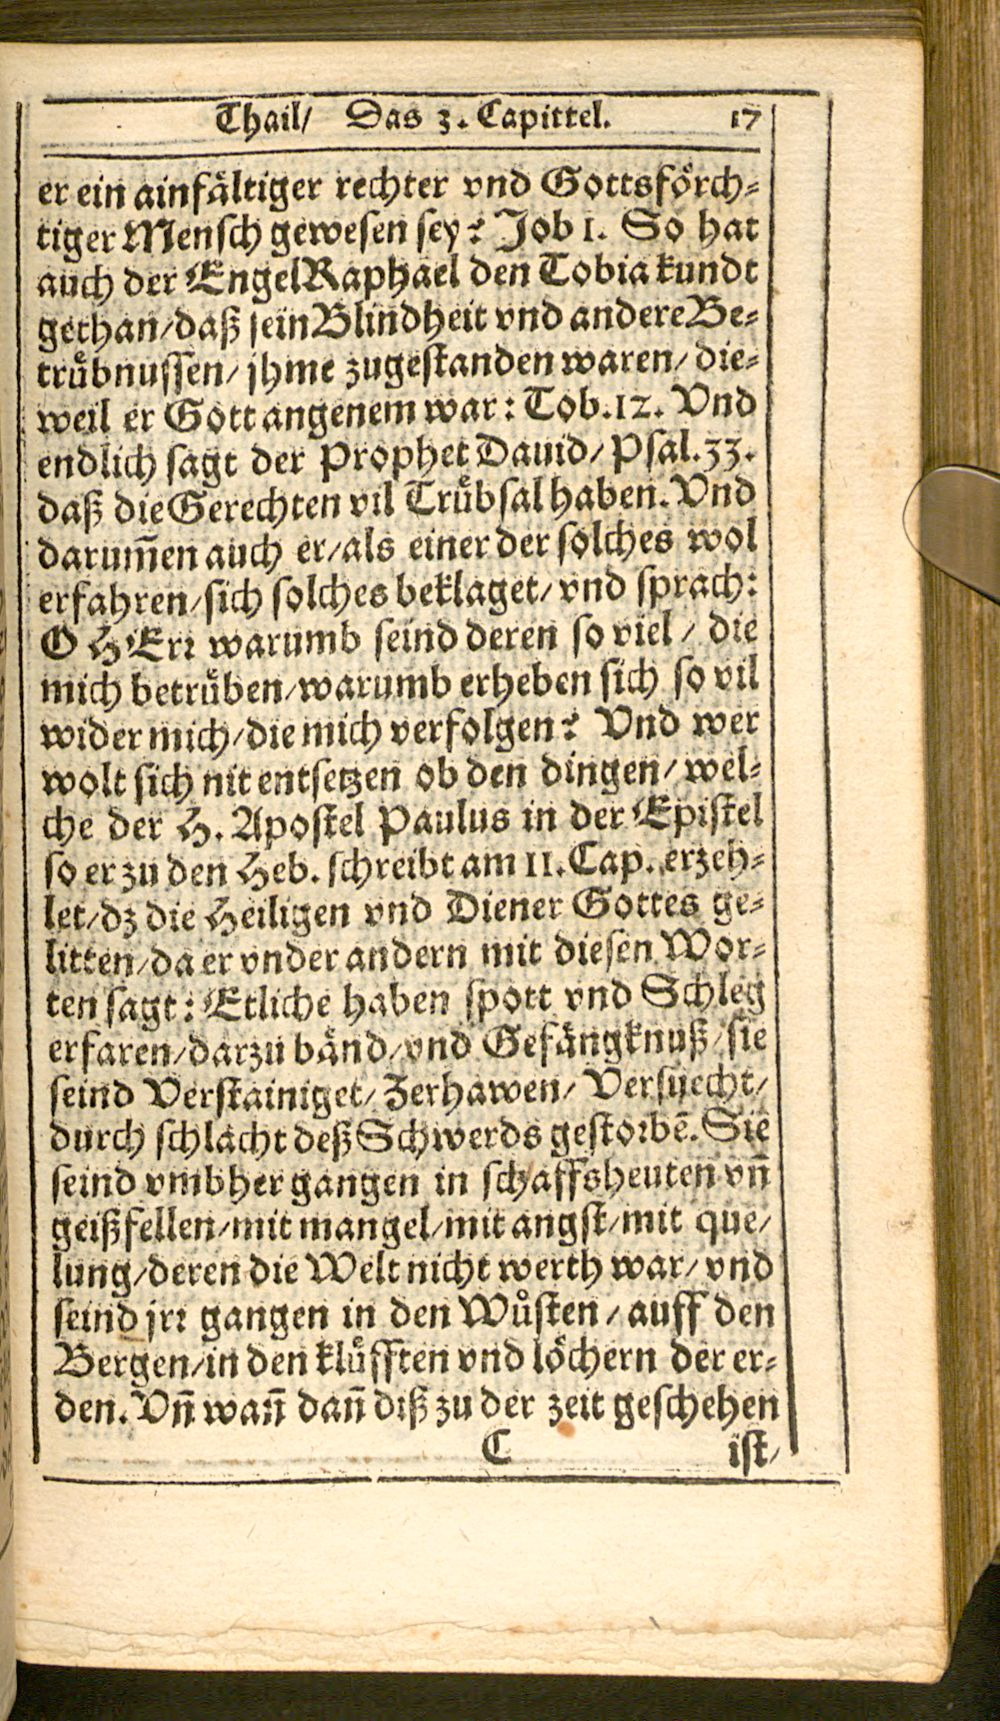 Thail/ Das 3. Capittel. 17
er ein ainfältiger rechter vnd Gottsförch-
tiger Mensch gewesen sey? Job 1. So hat
auch der Engel Raphael den Tobia kundt
gethan/daß sein Blindheit vnd andere Be-
trübnussen/ jhme zugestanden waren/ die-
weil er Gott angenem war: Tob.12. Vnd
endlich sagt der Prophet Dauid/ Psal.33.
daß die Gerechten vil Trübsal haben. Vnd
darum̃en auch er/als einer der solches wol
erfahren/sich solches beklaget/ vnd sprach:
O HErr warumb seind deren so viel / die
mich betrüben/warumb erheben sich so vil
wider mich/die mich verfolgen? Vnd wer
wolt sich nit entsetzen ob den dingen/ wel-
che der H. Apostel Paulus in der Epistel
so er zu den Heb. schreibt am 11. Cap. erzeh-
let/dz die Heiligen vnd Diener Gottes ge-
litten/da er vnder andern mit diesen Wor-
ten sagt: Etliche haben spott vnd Schleg
erfaren/darzu bänd/vnd Gefängknuß/sie
seind Verstainiget/ Zerhawen/ Versuecht/
durch schlacht deß Schwerds gestorbẽ. Sie
seind vmbher gangen in schaffsheuten vñ
geißfellen/mit mangel/mit angst/mit que/
lung/deren die Welt nicht werth war/ vnd
seind jrr gangen in den Wůsten / auff den
Bergen/in den klüfften vnd löchern der er-
den. Vñ wañ dañ diß zu der zeit geschehen
C ist/